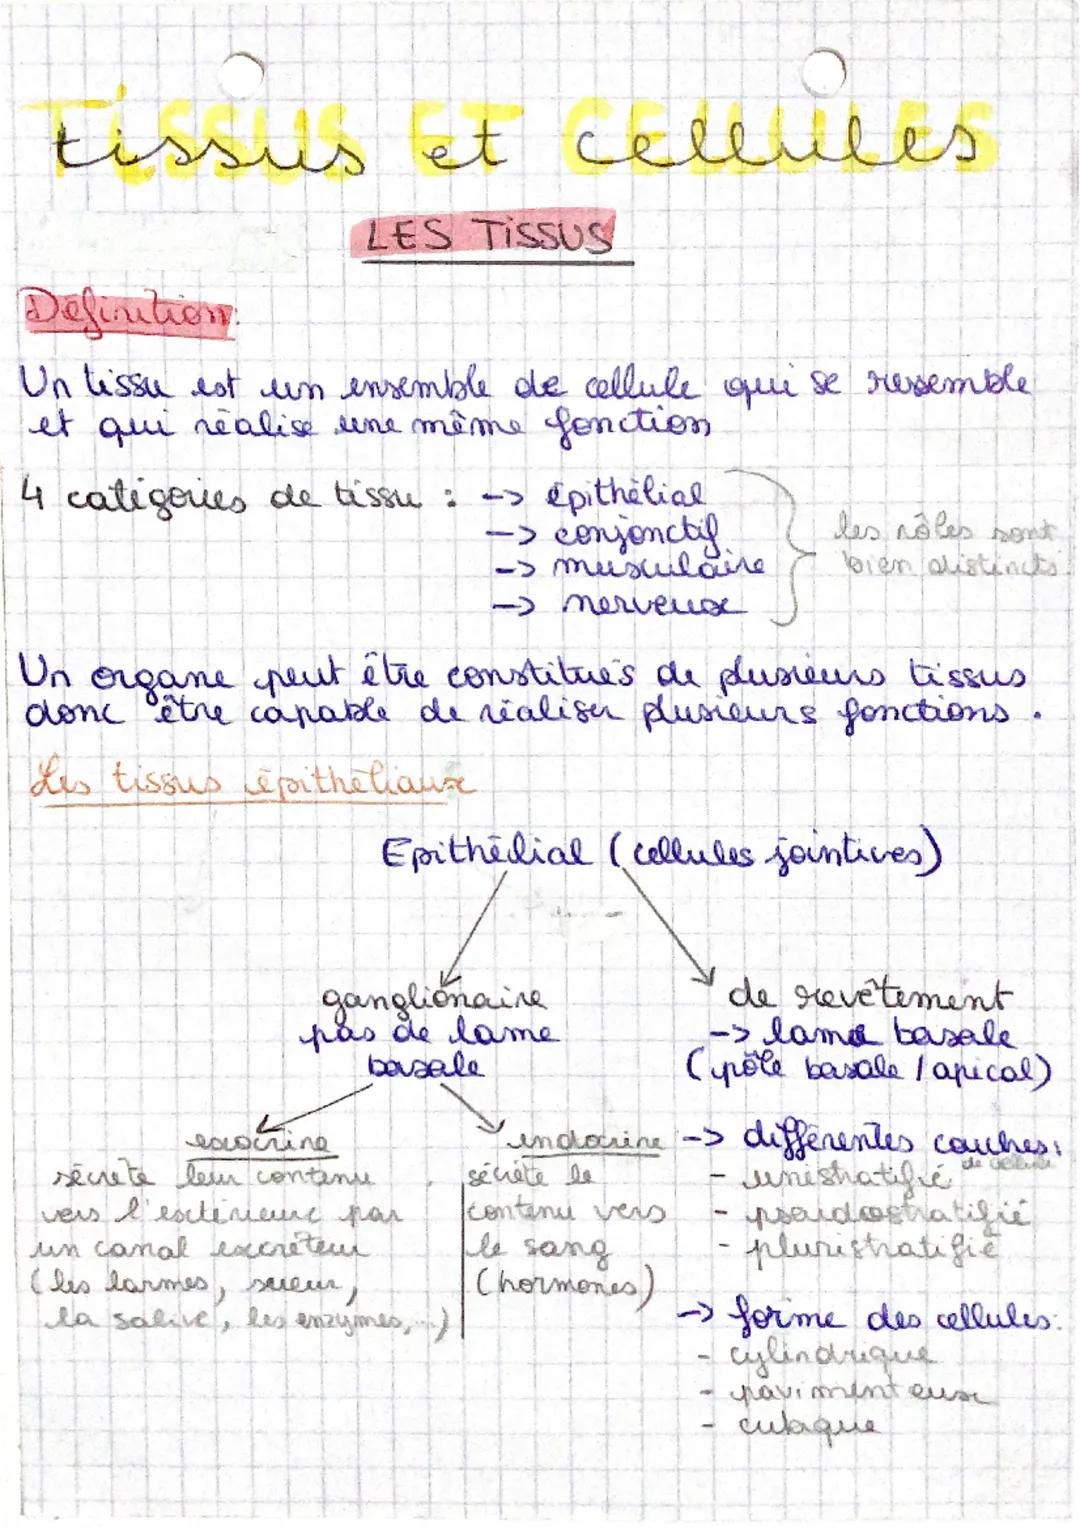 Tissus et cellules
LES TISSUS
Définition:
Un tissu est un ensemble de cellule qui se ressemble
et qui réalise une même fonction
4 catégories de tissu : -> épithélial
-> conjonctif
-> musculaire
-> nerveux
les rôles sont
bien distincts.
Un organe peut être constitués de plusieurs tissus
donc être capable de réaliser plusieurs fonctions.
Les tissus épithéliaux
Epithélial (cellules jointives)
ganglionaire
pas de lame
basale
de revêtement
-> lame basale
(pôle basale / apical)
exocrine
sécrète leur contenu
vers l'extérieur par
un canal excréteur
(les larmes, sueur,
la salive, les enzymes,...)
endocrine
sécrète le
contenu vers
le sang
(hormones)
-> différentes couches:
- unistratifié
- pseudostratifié
- pluristratifié
-> forme des cellules:
- cylindrique
- pavimenteux
- cubique